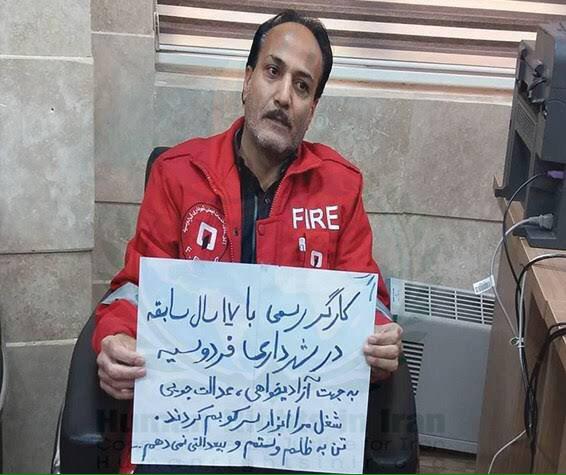 FIRE
کارگر رسمی با ۱۷ سال سابقه
در شهرداری فردوسیه
به جهت آزادیخواهی، عدالت جویی
شغل مرا ابزار سرکوبم کردند.
تن به ظلم و ستم و بیعدالتی نمی دهم...